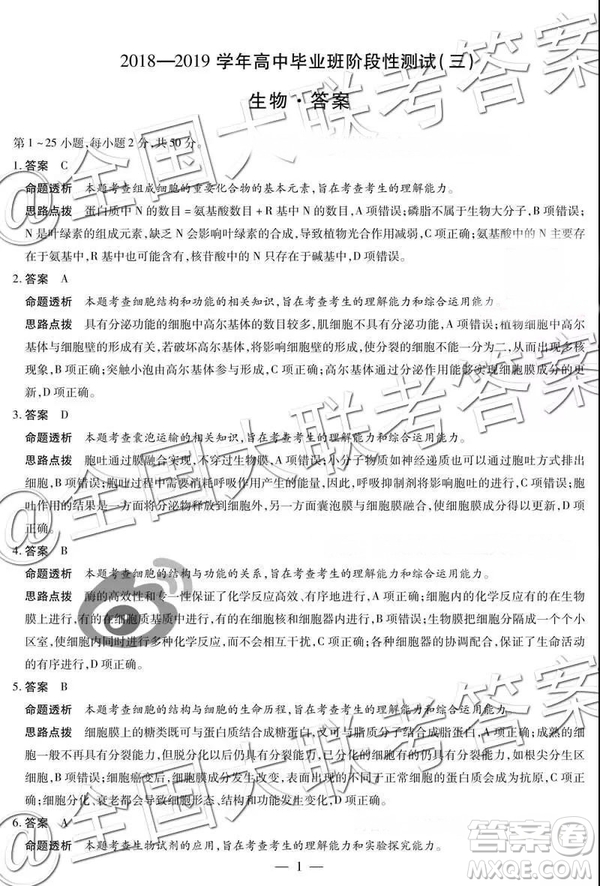 2018—2019 学年高中毕业班阶段性测试(三)
生物·答案
第 1 ~ 25 小题,每小题 2 分,共 50 分。
1. 答案 C
命题透析 本题考查组成细胞的重要化合物的基本元素,旨在考查考生的理解能力。
思路点拨 蛋白质中 N 的数目 = 氨基酸数目 + R 基中 N 的数目,A 项错误;磷脂不属于生物大分子,B 项错误;
N 是叶绿素的组成元素,缺乏 N 会影响叶绿素的合成,导致植物光合作用减弱,C 项正确;氨基酸中的 N 主要存
在于氨基中,R 基中也可能含有 N,核苷酸中的 N 只存在于碱基中,D 项错误。
2. 答案 A
命题透析 本题考查细胞结构和功能的相关知识,旨在考查考生的理解能力和综合运用能力。
思路点拨 具有分泌功能的细胞中高尔基体的数目较多,肌细胞不具有分泌功能,A 项错误;植物细胞中高尔
基体与细胞壁的形成有关,若破坏高尔基体,将影响细胞壁的形成,使分裂的细胞不能一分为二,从而出现多核
现象,B 项正确;突触小泡由高尔基体参与形成,C 项正确;高尔基体通过分泌作用能够实现细胞膜成分的更
新,D 项正确。
3. 答案 D
命题透析 本题考查囊泡运输的相关知识,旨在考查考生的理解能力和综合运用能力。
思路点拨 胞吐通过膜融合实现,不穿过生物膜,A 项错误;小分子物质如神经递质也可以通过胞吐方式排
出,B 项错误;胞吐过程中需要消耗呼吸作用产生的能量,因此,呼吸抑制剂将影响该生理过程,C 项错误;胞
吐作用的结果是一方面将分泌物释放到细胞外,另一方面囊泡膜与细胞膜融合,使细胞膜成分得以更新,D 项
正确。
4. 答案 B
命题透析 本题考查细胞的结构与功能的关系,旨在考查考生的理解能力和综合运用能力。
思路点拨 酶的高效性和专一性保证了化学反应高效、有序地进行,A 项正确;化学反应不都是在细胞的生物
膜上进行,有的在细胞质基质中进行,有的在细胞核和细胞器内进行,B 项错误;生物膜把细胞分隔成一个个小
区室,使细胞内同时进行多种化学反应,而不会相互干扰,C 项正确;各种细胞器的协调配合,保证了生命活动
的有序进行,D 项正确。
5. 答案 B
命题透析 本题考查细胞的结构与细胞的生命历程,旨在考查考生的理解能力和综合运用能力。
思路点拨 细胞膜上的糖类既可与蛋白质结合成糖蛋白,又可与脂质分子结合形成糖脂,A 项正确;成熟的细
胞一般不再具有分裂能力,但脱分化以后可具有分裂能力,已分化的细胞有的仍具有分裂能力,如根尖分生区
细胞,B 项错误;细胞癌变后,细胞膜成分发生改变,有可能产生甲胎蛋白、癌胚抗原等蛋白质成为抗原,C 项正
确;分化、衰老都会导致细胞形态、结构与功能发生变化,D 项正确。
6. 答案 A
命题透析 本题考查生物试剂的应用,旨在考查考生的理解能力和实验探究能力。
— 1 —
@全国大联考答案
@全国大联考答案
@全国大联考答案
答案圈
MXQE.COM